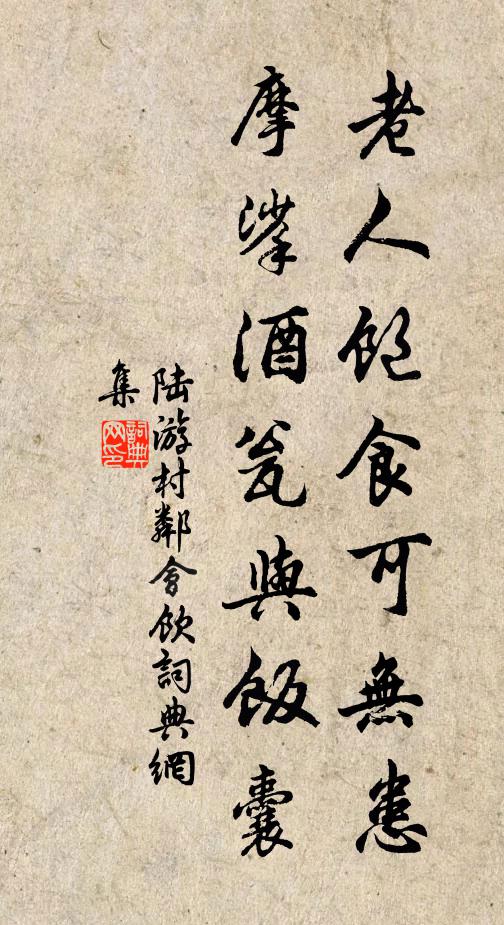 老人飽食可無患
摩挲酒瓮與飯囊
陆游村鄰會飲詞典網
集
詞典网印